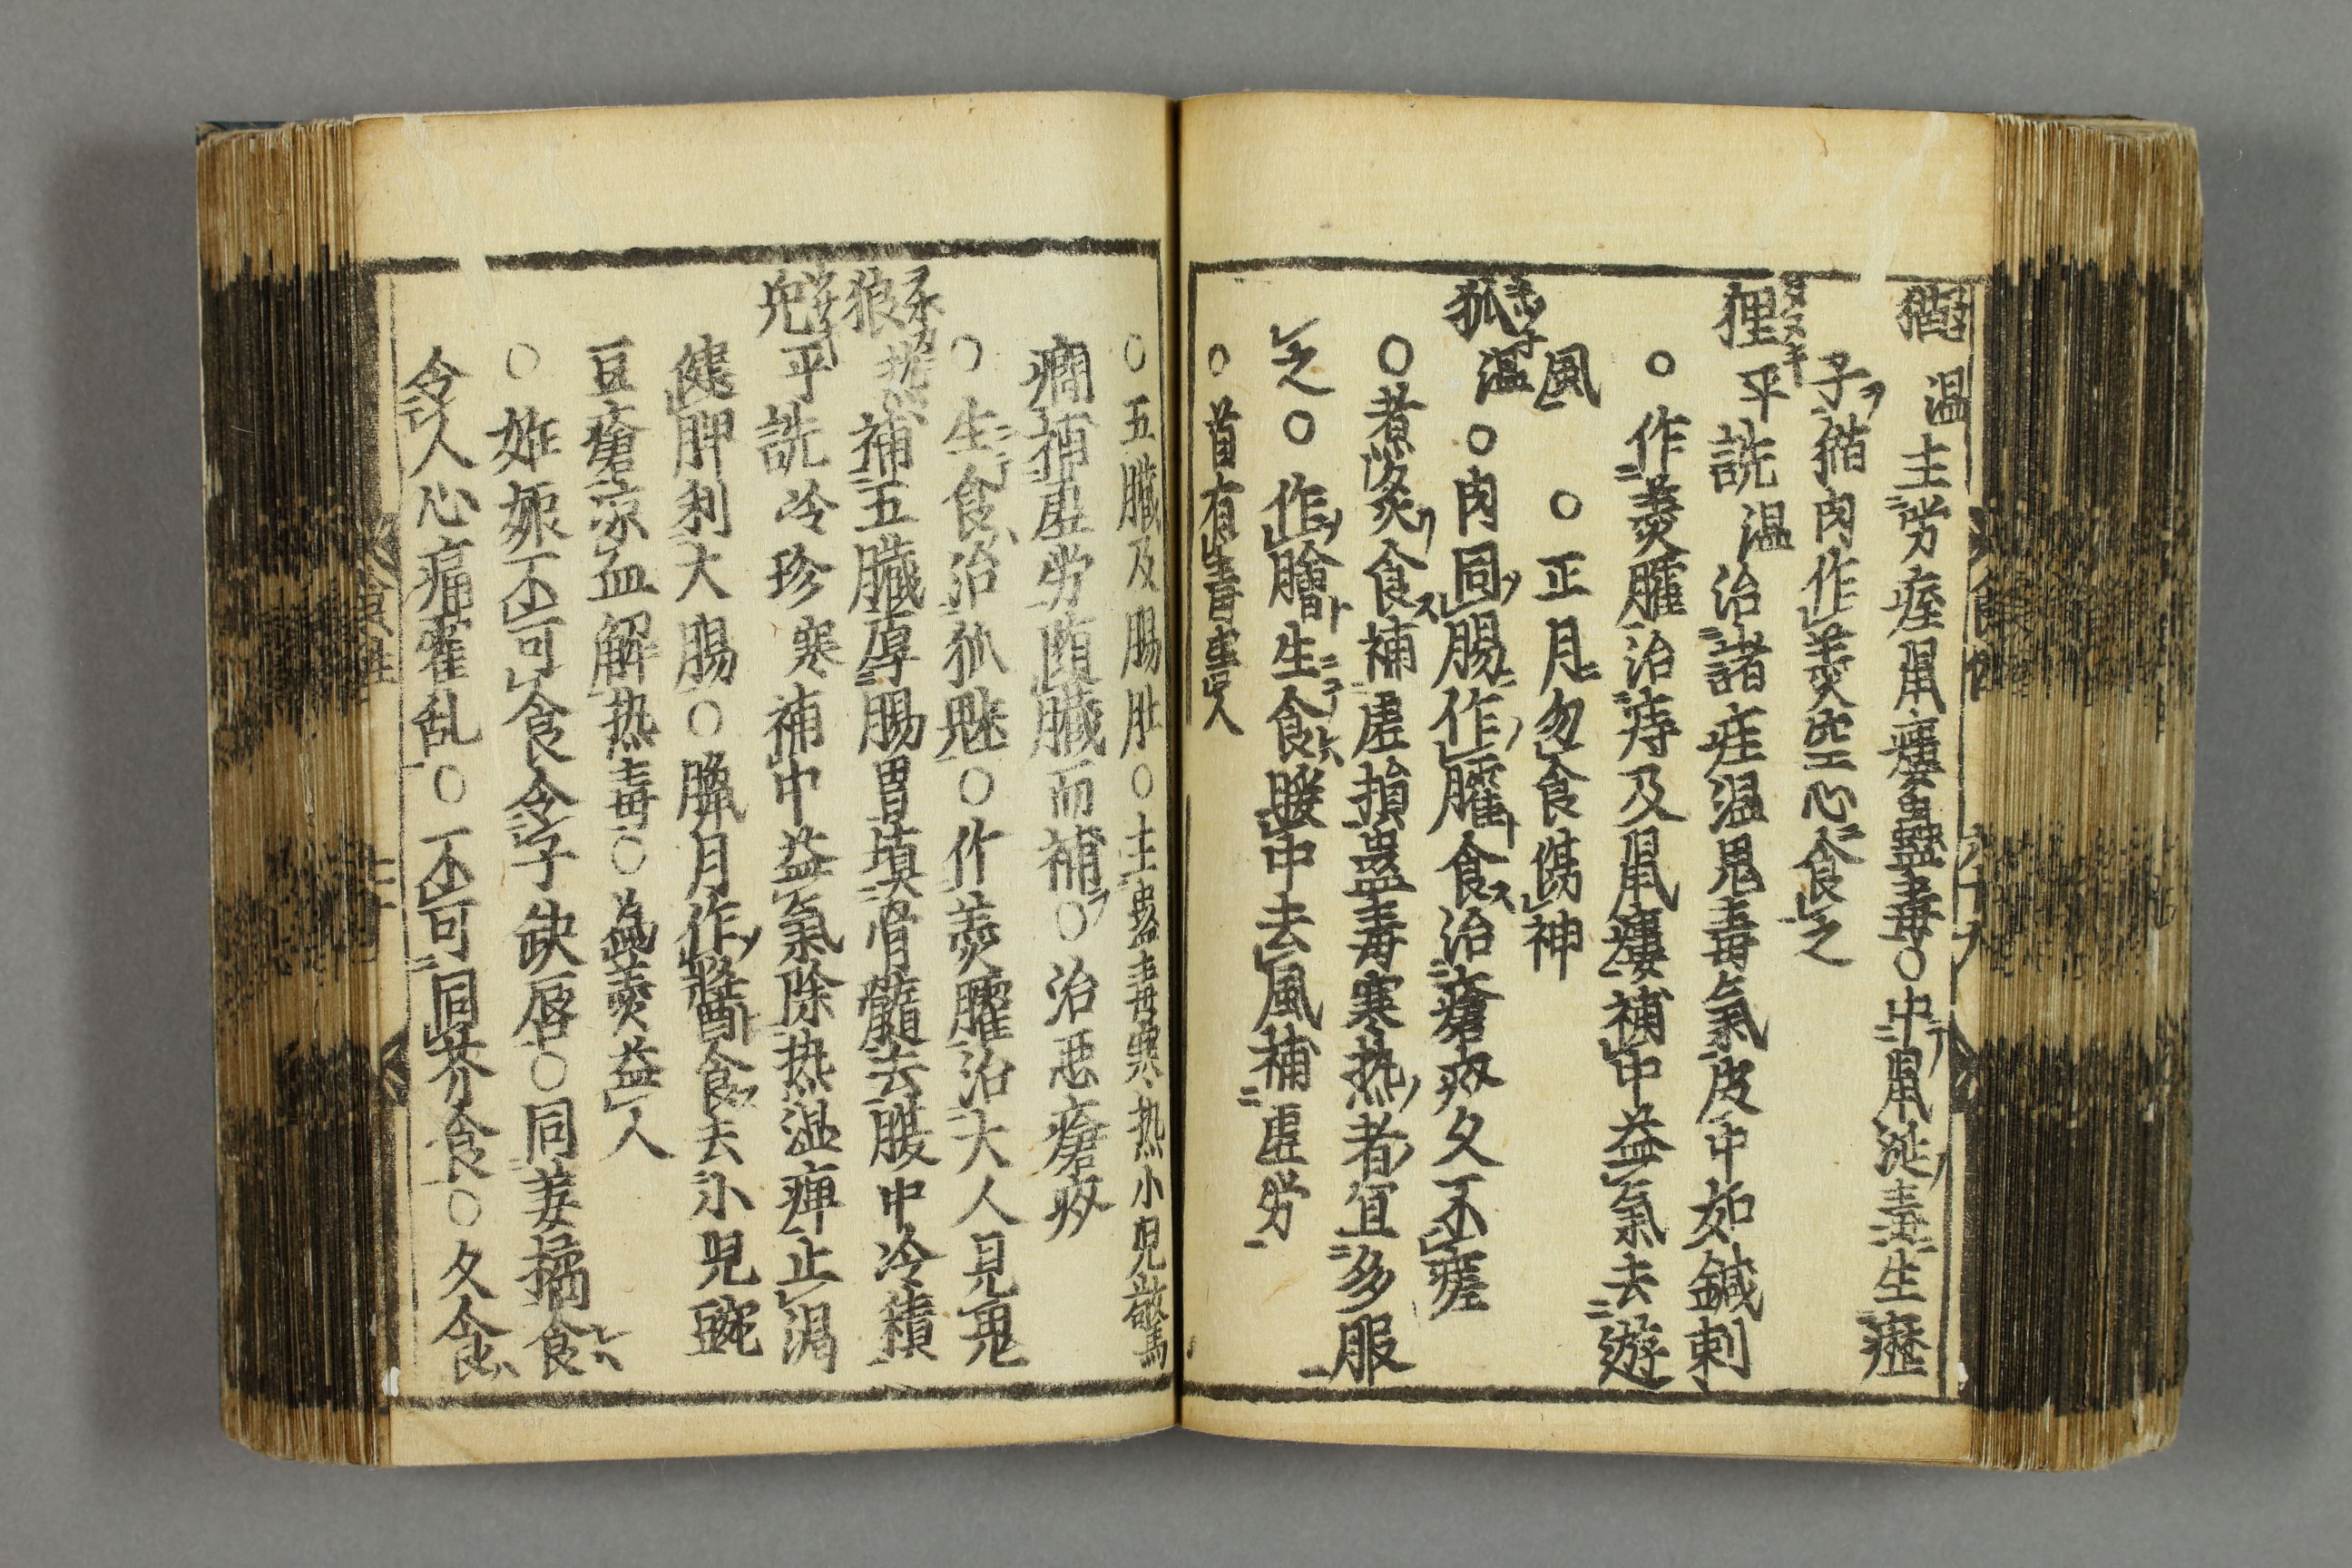 猫 温 主労瘧鼠瘻蠱毒○中鼠涎毒生癧
子猫肉作羹空心食之
狸 平 説温 治諸疰温鬼毒氣皮中如鍼刺
○作羹臛治痔及鼠瘻補中益氣去遊
風 ○正月勿食傷神
狐 温 ○肉同腸作臛食治瘡疥久不瘥
○煮炙食補虚損蠱毒寒热者宜多服
之○作膾生食暖中去風補虚労
○首有毒害人
○五臓及腸肚○主蠱毒寒热小児驚
癇補虚労随臓而補○治悪瘡疥
○生食治狐魅○作羹臛治大人見鬼
狼 热 補五臓厚腸胃填骨髄去腹中冷積
兎 平 説冷 珍寒 補中益氣除热温痺止渇
健脾利大腸○臘月作醤食去小児豌
豆瘡凉血解热毒○為羹益人
○姙娠不可食令子缺唇○同姜橘食
令人心痛霍乱○不可同芥食○久食